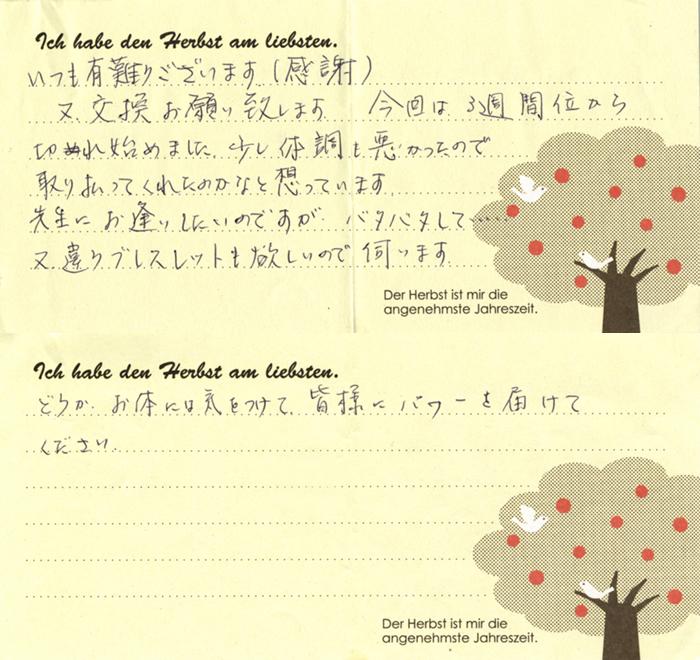 Ich habe den Herbst am liebsten.
いつも有難うございます(感謝)
又、交換お願い致します 今回は3週間位から
切れ始めました。少し体調も悪かったので
取り払ってくれたのかなと想っています
先生にお逢いしたいのですが、バタバタして……
又違うブレスレットも欲しいので伺います
Der Herbst ist mir die
angenehmste Jahreszeit.
Ich habe den Herbst am liebsten.
どうか、お体には気をつけて、皆様にパワーを届けて
ください。
Der Herbst ist mir die
angenehmste Jahreszeit.